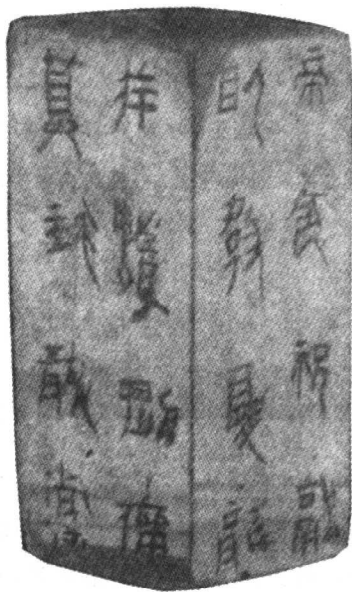 帝令祝融
以教夔龍
庶疫剛癉
莫我敢當